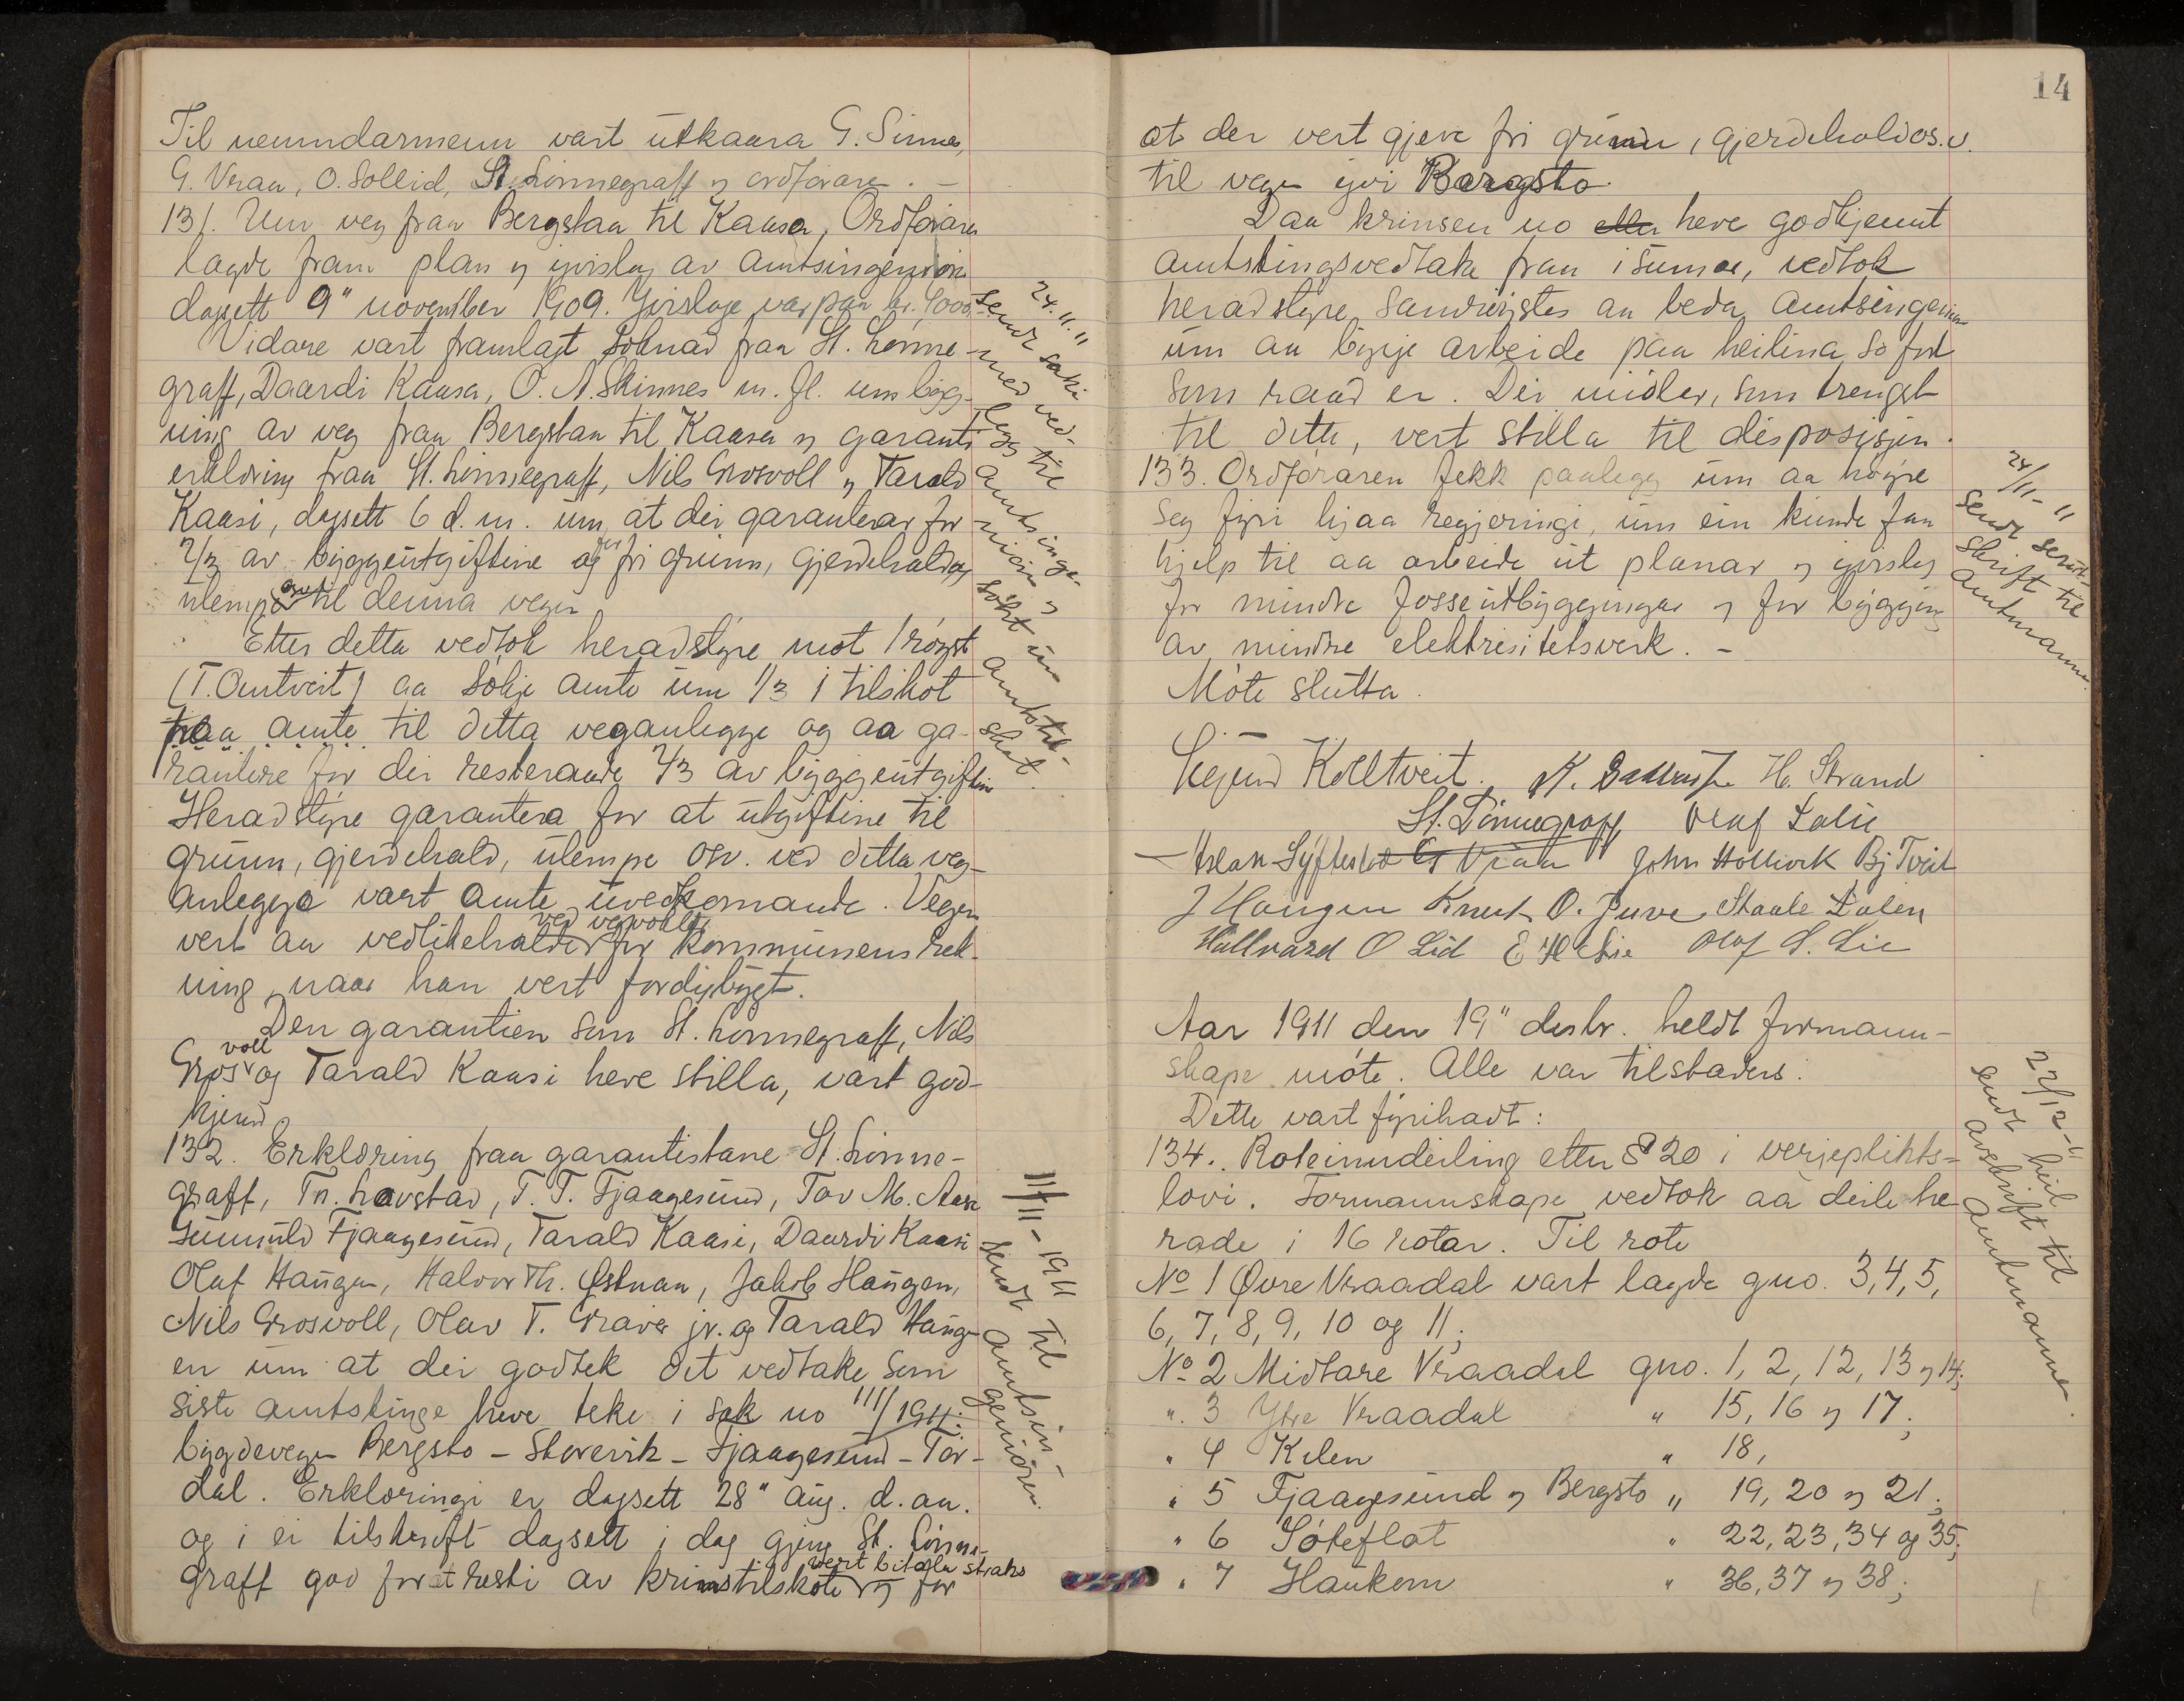 Til nemndarmenn vart utkaara G. Sinnes,
G. Vraa, O. Sollid, St. Lønnegraff og ordførare. —
131. Um veg fraa Bergstaa til Kaasa, Ordføraren
lagde fram plan og yvislag av amtsingeniøren
dagsett 9" november 1909. Yvislage var paa kr. 9000.
Vidare vart framlagt søknad fraa St. Lønne-
graff, Daardi Kaasa, O. N. Skinnes m. fl. um bygg-
ning av veg fraa Bergstaa til Kaasa og garanti
erklæring fraa St. Lønnegraff, Nils Grosvoll og Tarald
Kaasi, dagsett 6 d. m. um at dei garanterar for
2/3 av byggeutgiftine og fri grunn, gjerdehald og
ulempe til denna vegen
Etter detta vedtok heradstyre mot 1 røyst
(T. Omtveit) aa søkje amte um 1/3 i tilskot
fraa amte til detta veganlegge og aa ga-
rantere for dei resterande 2/3 av byggjeutgiftine
Heradstyre garantera for at utgiftine til
grunn, gjerdehald, ulempe osv. ved detta veg-
anlegge vart amte uvedkomande. Vegen
ved vegvoldt
vert aa vedlikehalde for kommunens rek-
ning, naar han vert fordigbygt.
Den garantien som St. Lønnegraff, Nils
Grosvoll og Tarald Kaasi heve stilla, vart god-
kjend
132. Erklæring fraa garantistane St. Lønne-
graff, Tn. Lavstad, T. T. Fjaagesund, Tov M. Aase
Gunnuld Fjaagesund, Tarald Kaasi, Daardi Kaasi
Olaf Haugen, Halvor Th. Østnaa, Jakob Haugen,
Nils Grosvoll, Olav T. Graver jr. og Tarald Haug-
en um at dei godtek det vedtake som
siste amtstinge heve teke i sak no 111/1911:
bygdevegen Bergsto – Storvik – Fjaagesund – Tør-
dal. Erklæringi er dagsett 28" aug. d. aa.
og i ei tilskrift dagsett i dag gjeng St. Lønne-
graff god for at resti av krinstilskote vert bitala straks og for
24.11.11
Sendt saki
med ved-
legg til
amtsinge-
niøren og
søkt um
amtstil-
skot.
11/11 – 1911
Sendt til
amtsin-
geniøren.
14
at der vert gjeve fri grunn, gjerdehald os.v.
til vegen yvi Bergsto.
Daa krinsen no heve godkjennt
amtstingsvedtake fraa i sumar, vedtok
heradstyre samrøystes aa beda amtsingeniøren
um aa byrje arbeide paa heilina so fort
som raad er. Dei midlar, som trengst
til dette, vert stilla til disposisjon.
133. Ordføraren fekk paalegg um aa høyre
seg fyri hjaa regjeringi, um ein kunde faa
hjelp til aa arbeide ut planar og yvislag
for mindre fosseutbyggjingar og for bygging
av mindre elektrisitetsverk. –
Møte slutta.
24/11–11
Sendt serut-
skrift til
amtmannen.
Sigurd Kolltveit. H. Strand
St. Lønnegraff Olaf Lalie
G Vraa John Holtvork Bj Tveit
J Haugen Knut O. Juve Staale Dalen
Hallvard O Lid E H Lie Olaf S. Lie
Aar 1911 den 19" desbr. heldt formann-
skape møte. Alle var tilstades.
Dette vart fyrihadt:
134. Roteinndeiling etter § 20 i verjeplikts-
lovi. Formannskape vedtok aa deile he-
rade i 16 rotar. Til rote
No 1 Øvre Vraadal vart lagde gno. 3, 4, 5,
6, 7, 8, 9, 10 og 11;
No 2 Midtare Vraadal gno. 1, 2, 12, 13 og 14;
" 3 Ytre Vraadal " 15, 16 og 17;
" 4 Kilen " 18,
" 5 Fjaagesund og Bergsto " 19, 20 og 21;
" 6 Søteflot " 22, 23, 34 og 35;
" 7 Haukom " 36, 37 og 38;
22/12–11
Sendt heil
avskrift til
amtmannen.